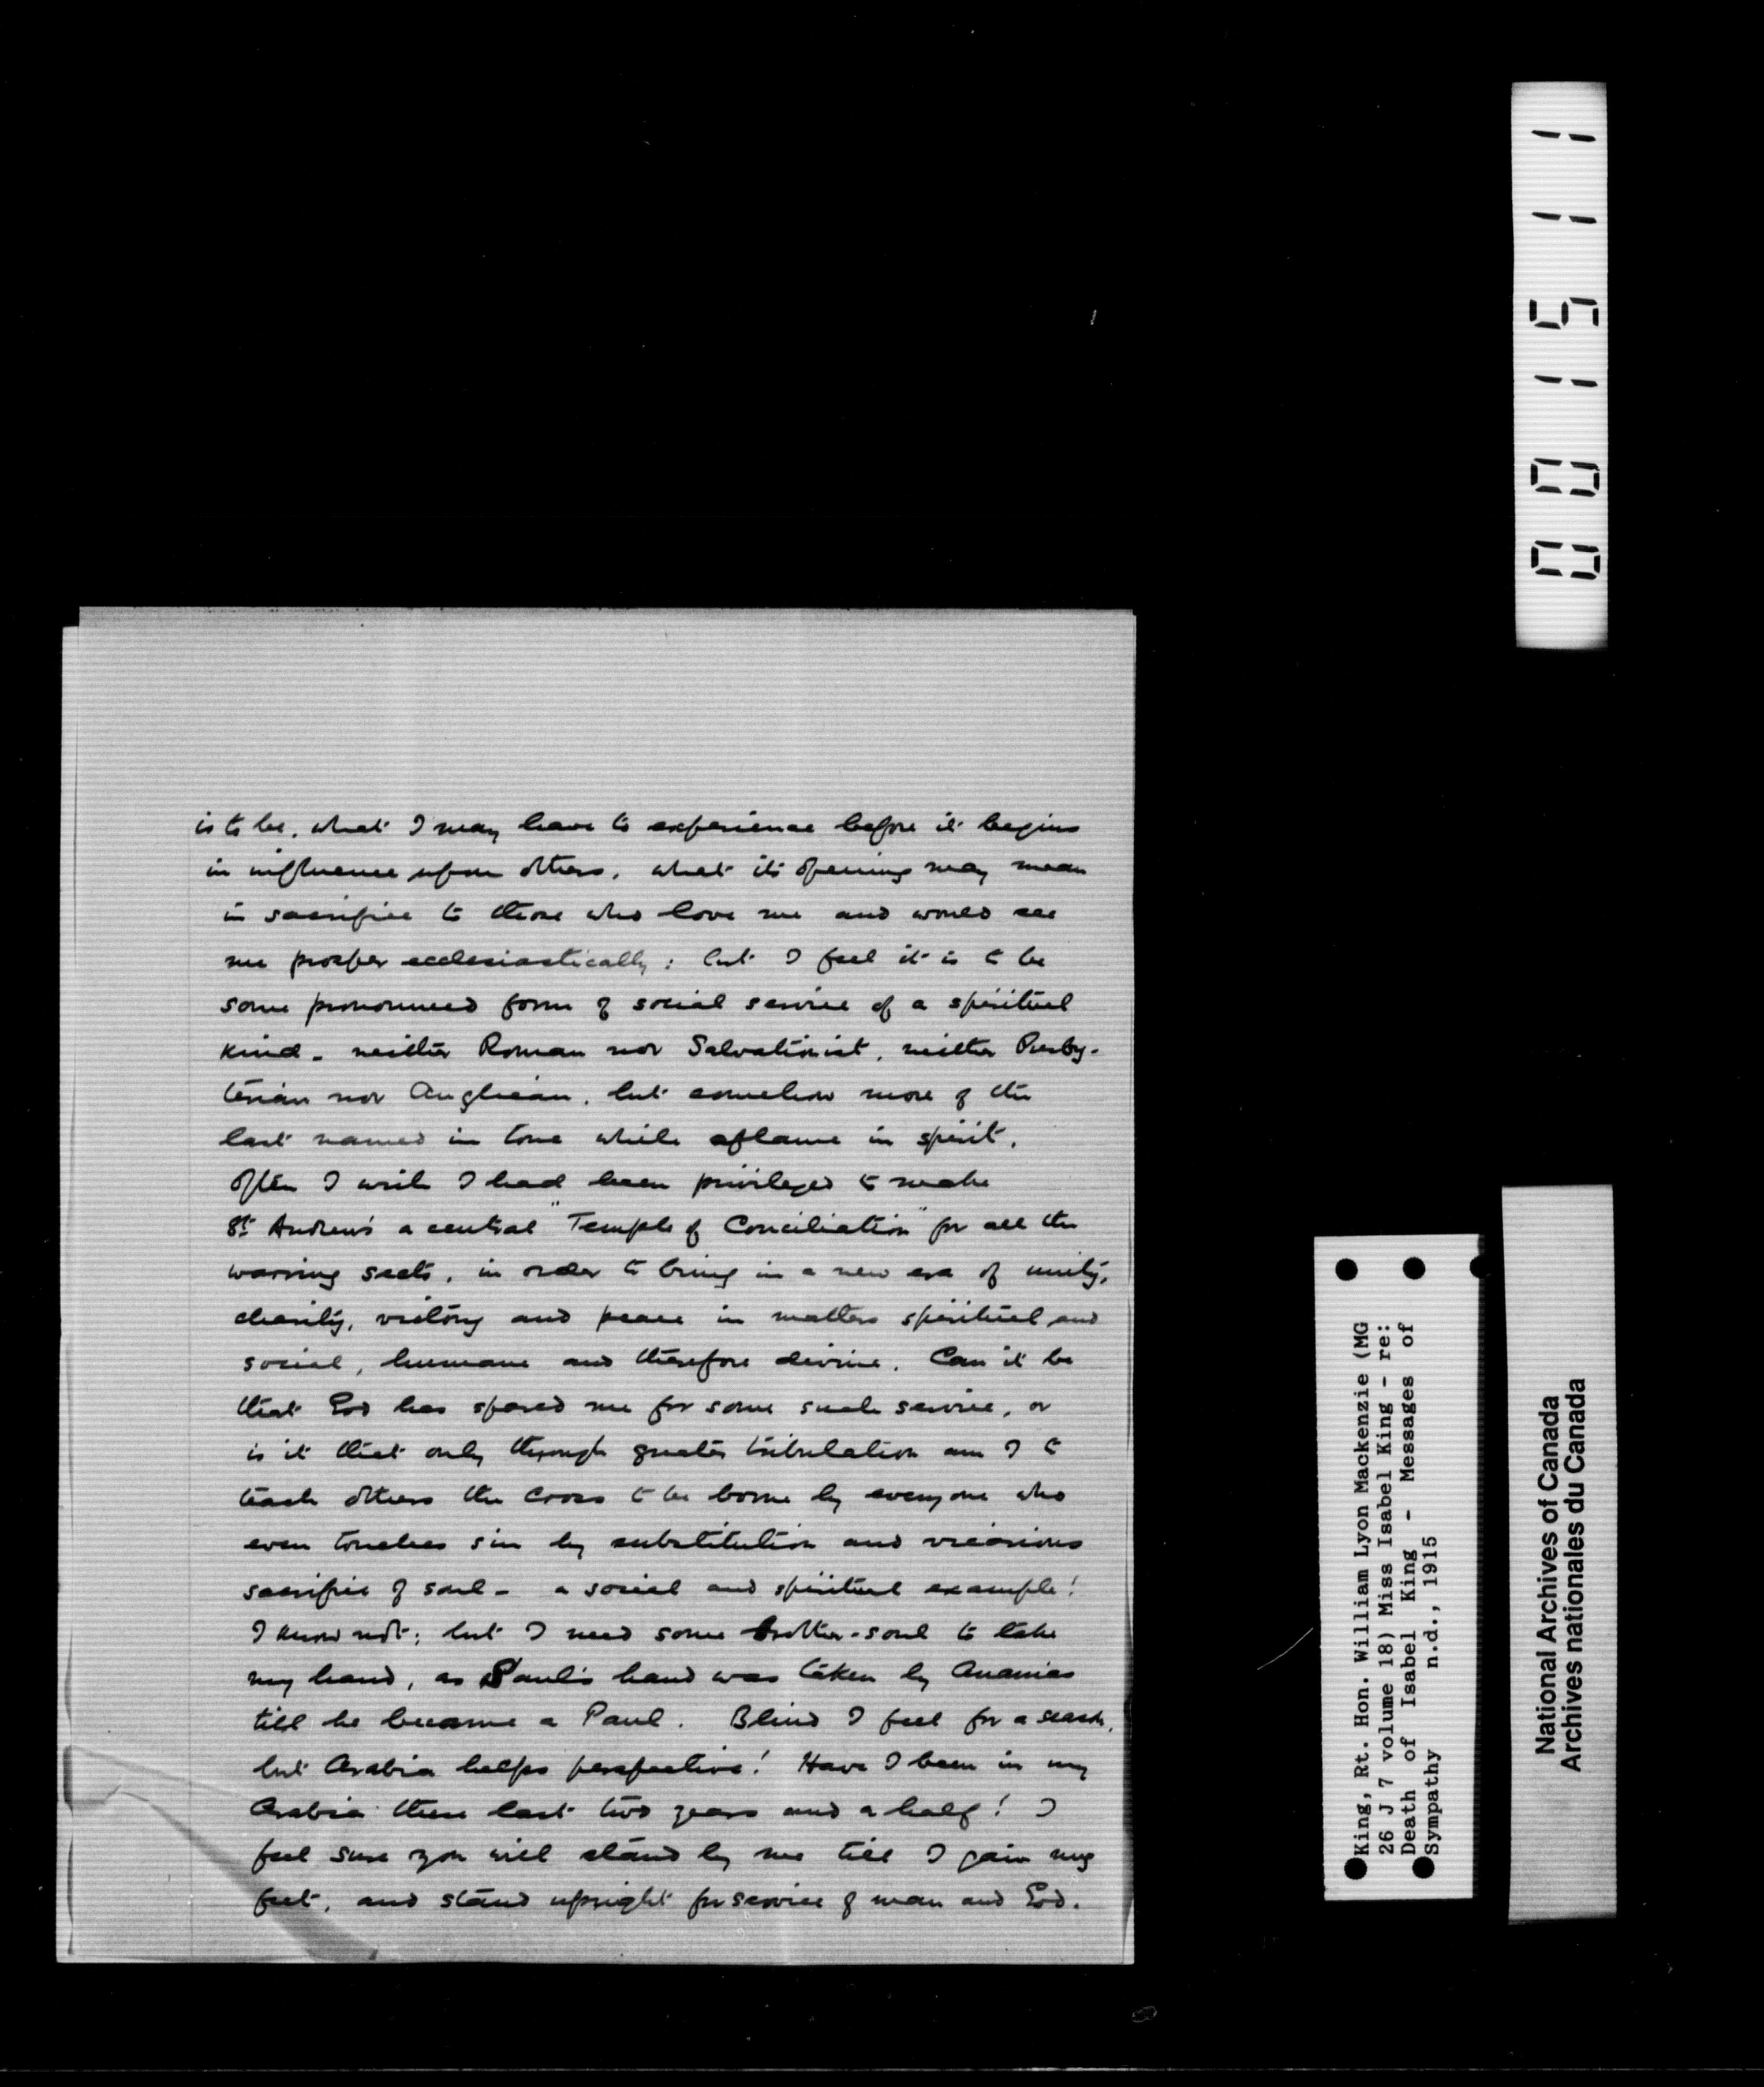 is to be, what I may have to experience before it begins
in influence upon others, what its opening may mean
in sacrifice to those who love me and would see
me prosper ecclesiastically: but I feel it is to be
some pronounced form of social service of a spiritual
kind - neither Roman nor Salvationist, neither Presby-
terian nor Anglican, but somehow more of the
last named in tone while aflame in spirit.
Often I wish I had been privileged to make
St Andrew's a central "Temple of Conciliation" for all the
warring sects, in order to bring in a new era of unity,
charity, victory and peace in matters spiritual and
social, humane and therefore divine. Can it be
that God has spared me for some such service, or
is it that only through greater tribulation am I to
teach others the Cross to be borne by everyone who
even touches sin by substitution and vicarious
sacrifice of soul - a social and spiritual example!
I know not; but I need some brother-soul to take
my hand, as Saul's hand was taken by Ananias
till he became a Paul. Blind I feel for a search,
but Arabia helps perspective! Have I been in my
Arabia these last two years and a half! I
feel sure you will stand by me till I gain my
feet, and stand upright for service of man and God.
001511
King, Rt. Hon. William Lyon Mackenzie (MG
26 J 7 volume 18) Miss Isabel King - re:
Death of Isabel King - Messages of
Sympathy n.d., 1915
National Archives of Canada
Archives nationales du Canada